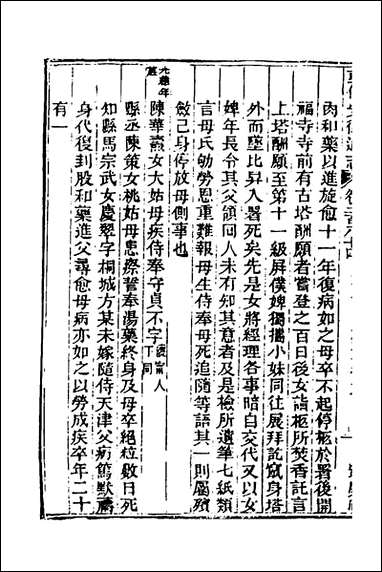 肉和藥以進旋愈十一年復病如之母卒不起停柩於署後開
福寺寺前有古塔酬願者當登之百日後女詣柩所焚香託言
上塔酬願至第十一級屏僕婢獨攜小妹同往展拜訖竄身塔
外而墜比舁入署死矣先是女將經理各事暗自交代又以女
婢年長令其父領回人未有知其意者及是檢所遺筆七紙類
言母氏劬勞恩重難報母生侍奉母死追隨等語其一則屬殯
斂己身停放母側事也
光緒年
陳華蓋女大姑母疾侍奉守貞不字
縣丞陳策女桃姑母患瘵誓奉湯藥終身及母卒絕粒數日死
知縣馬宗武女慶翠字桐城方某未嫁隨侍天津父病篤默禱
身代復刲股和藥進父尋愈母病亦如之以勞成疾卒年二十
有一